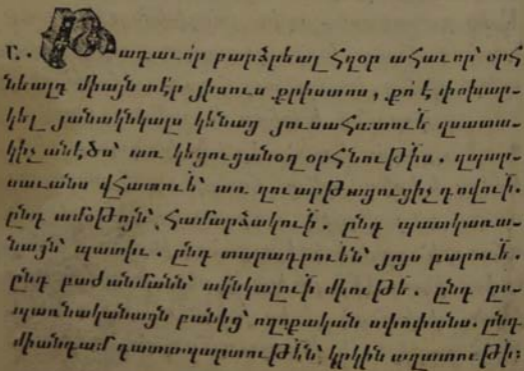 Գ. Թագաւո՛ր բարձրեալ հզօր ահաւոր՝ օրհ
նեալդ միայն տէր յիսուս քրիստոս, քո՛ է փոխար
կել յանակնկալս կենաց յուսահատուե զսատա
կիչ անէծս՝ առ կեցուցանօղ օրհնութիս. զպար
սաւանս վհատուե՝ առ զուարթացուցիչ գովուի.
ընդ ամօթոյն՝ համարձակուի. ընդ պատկառա
նացն՝ պատիւ. ընդ տարագրուեն՝ յոյս բարուե.
ընդ բաժանմանն՝ ակնկալուի միութե. ընդ ըս
պառնականացն բանից՝ ողոքական սփոփանս. ընդ
միանգամ դատապարտութեն՝ կրկին ազատութի: